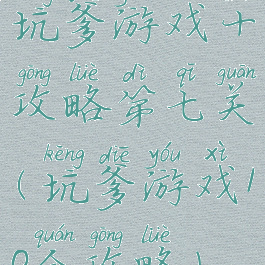 坑爹游戏十
gòng lüè dì qī guān
攻略第七关
kēng diē yóu xì
(坑爹游戏1
quán gòng lüè
0全攻略)